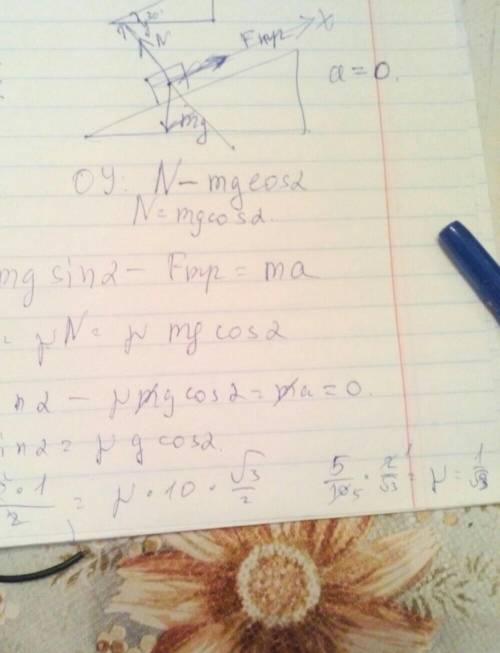 N
Fтр
x
a = 0.
mg
OY: N - mg cosα
N = mg cosα.
mg sinα - Fтр = ma
= μN = μ mg cosα
nα - μ mg cosα = ma = 0.
inα = μ g cosα.
· 1/2 = μ · 10 · √3/2
5/10 5 · 2/√3 1 = μ = 1/√3